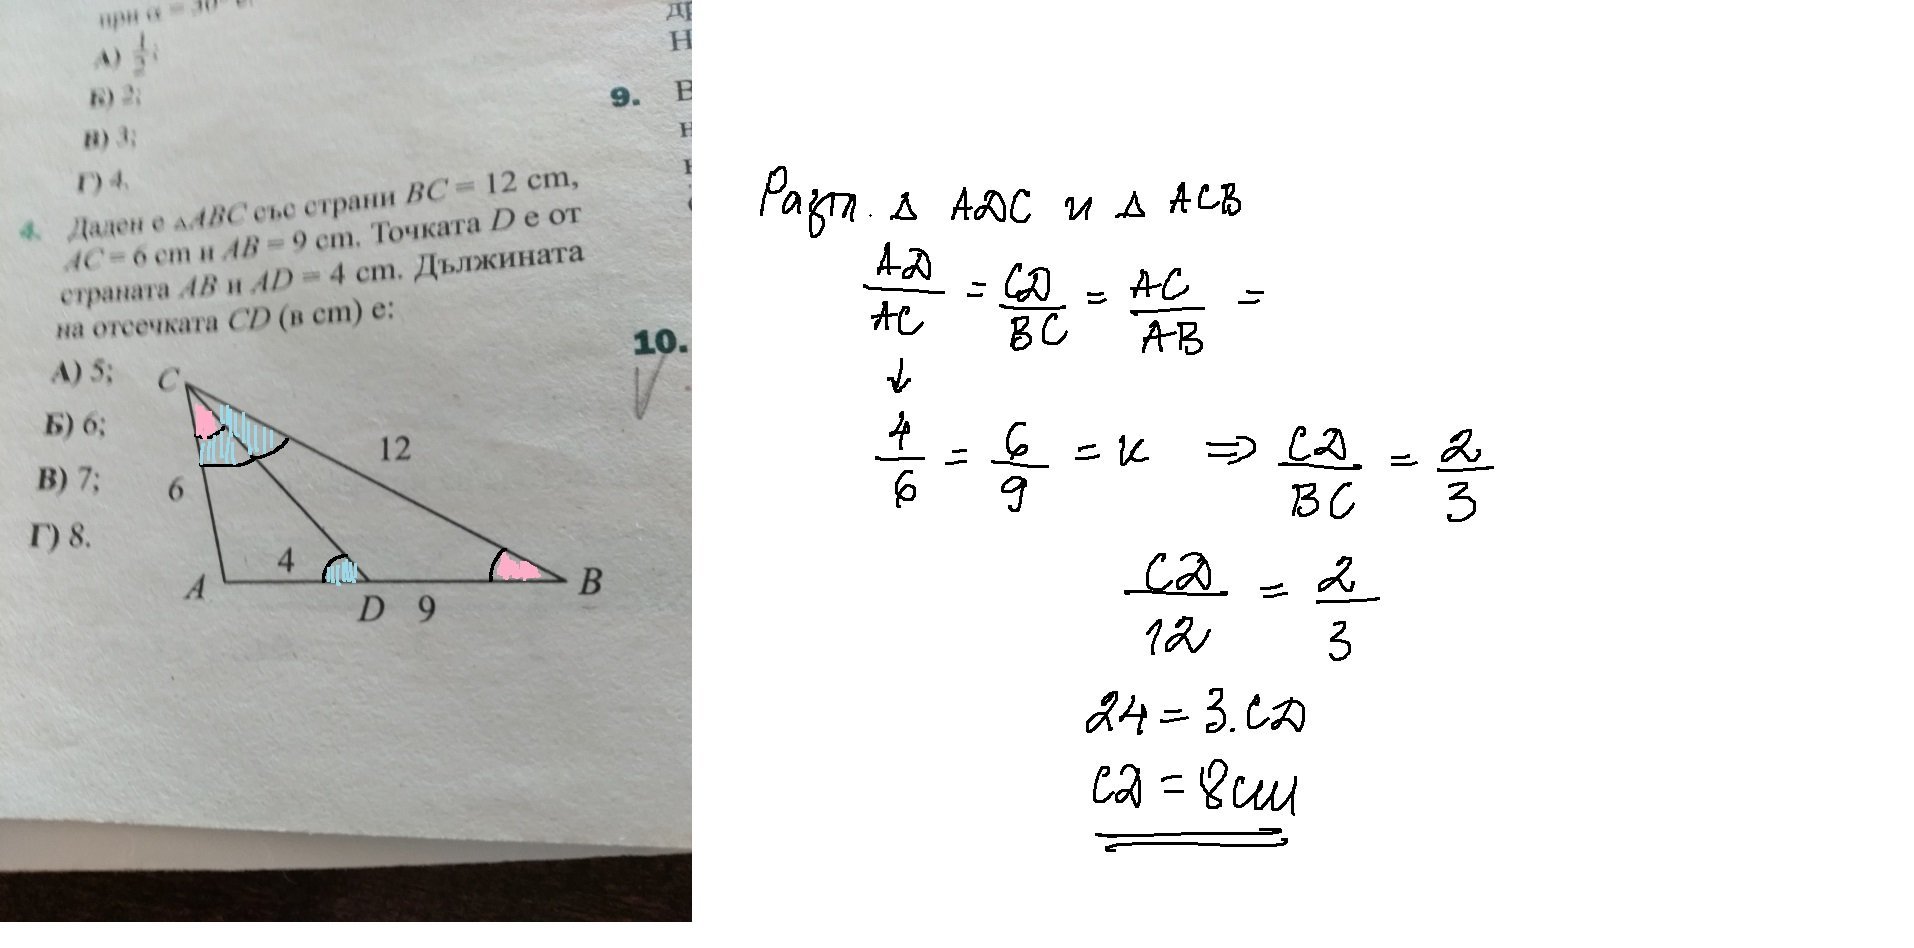 при α = 30° е:
А) 1/2;
Б) 2;
В) 3;
Г) 4.
4. Даден е △ABC със страни BC = 12 cm,
AC = 6 cm и AB = 9 cm. Точката D е от
страната AB и AD = 4 cm. Дължината
на отсечката CD (в cm) е:
А) 5;
Б) 6;
В) 7;
Г) 8.
C
12
6
4
A
D 9
B
Н
9. В
н
10.
Разгл. △ ADC и △ ACB
AD/AC = CD/BC = AC/AB =
↓
4/6 = 6/9 = k ⇒ CD/BC = 2/3
CD/12 = 2/3
24 = 3.CD
CD = 8cm